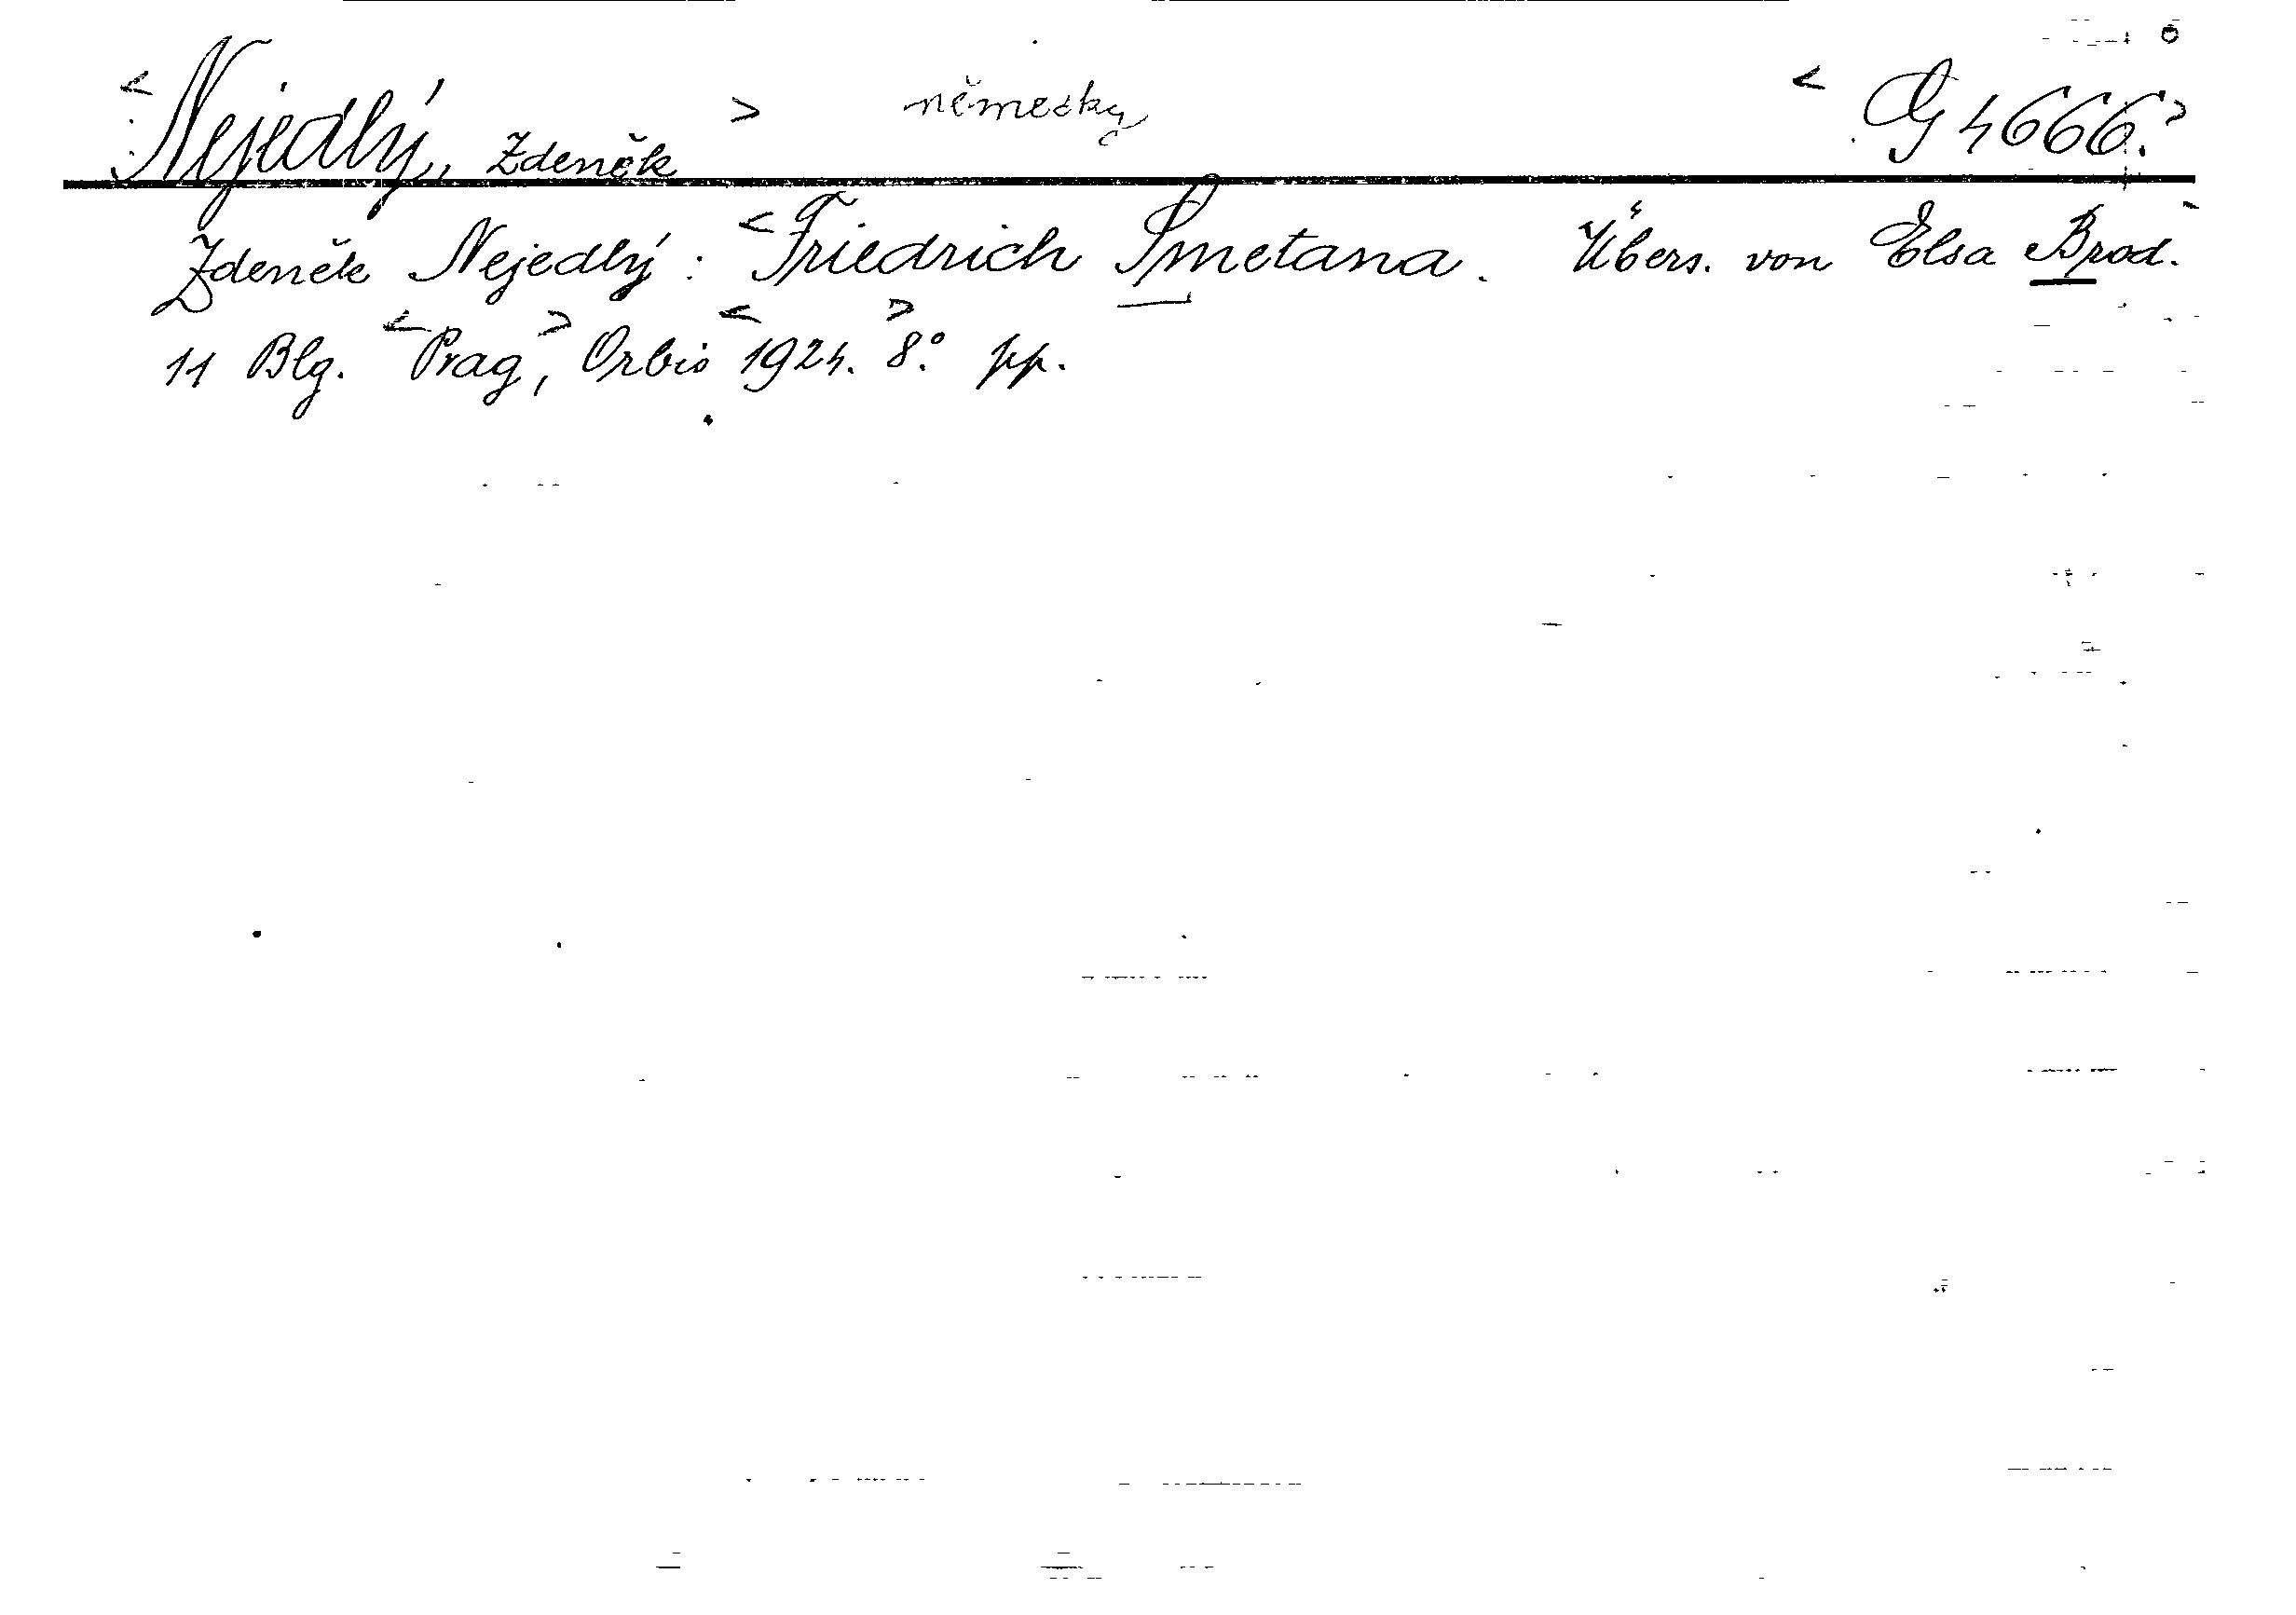 <Nejedlý, Zdeněk> německy <G 4666.>
Zdeněk Nejedlý: <Friedrich Smetana. Übers. von Elsa Brod.
11 Blg. <Prag>, Orbis <1924.> 8.° pp.